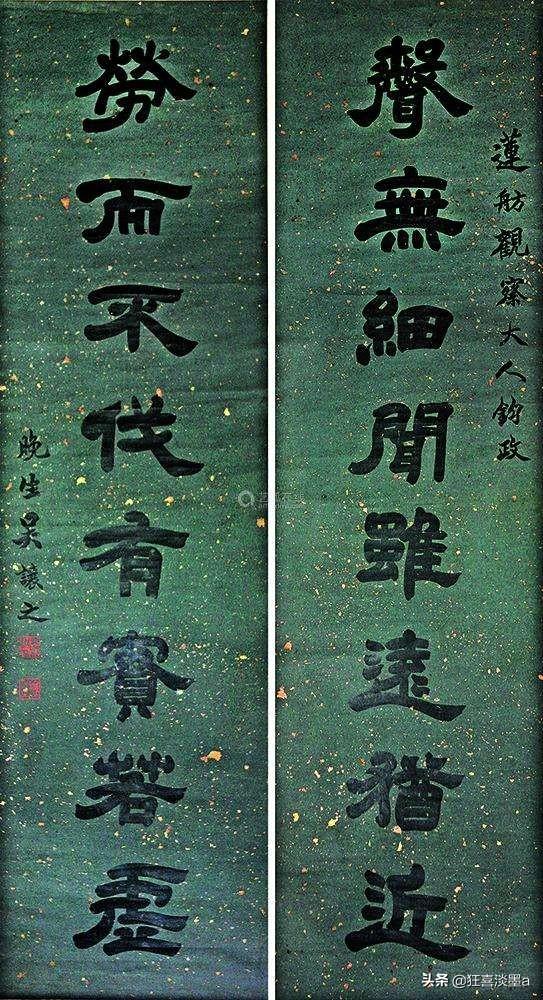 蓮舫觀察大人鈞政
聲無細聞雖遠猶近
勞而不伐有實若虛
晚生吳讓之
头条 @狂喜淡墨a